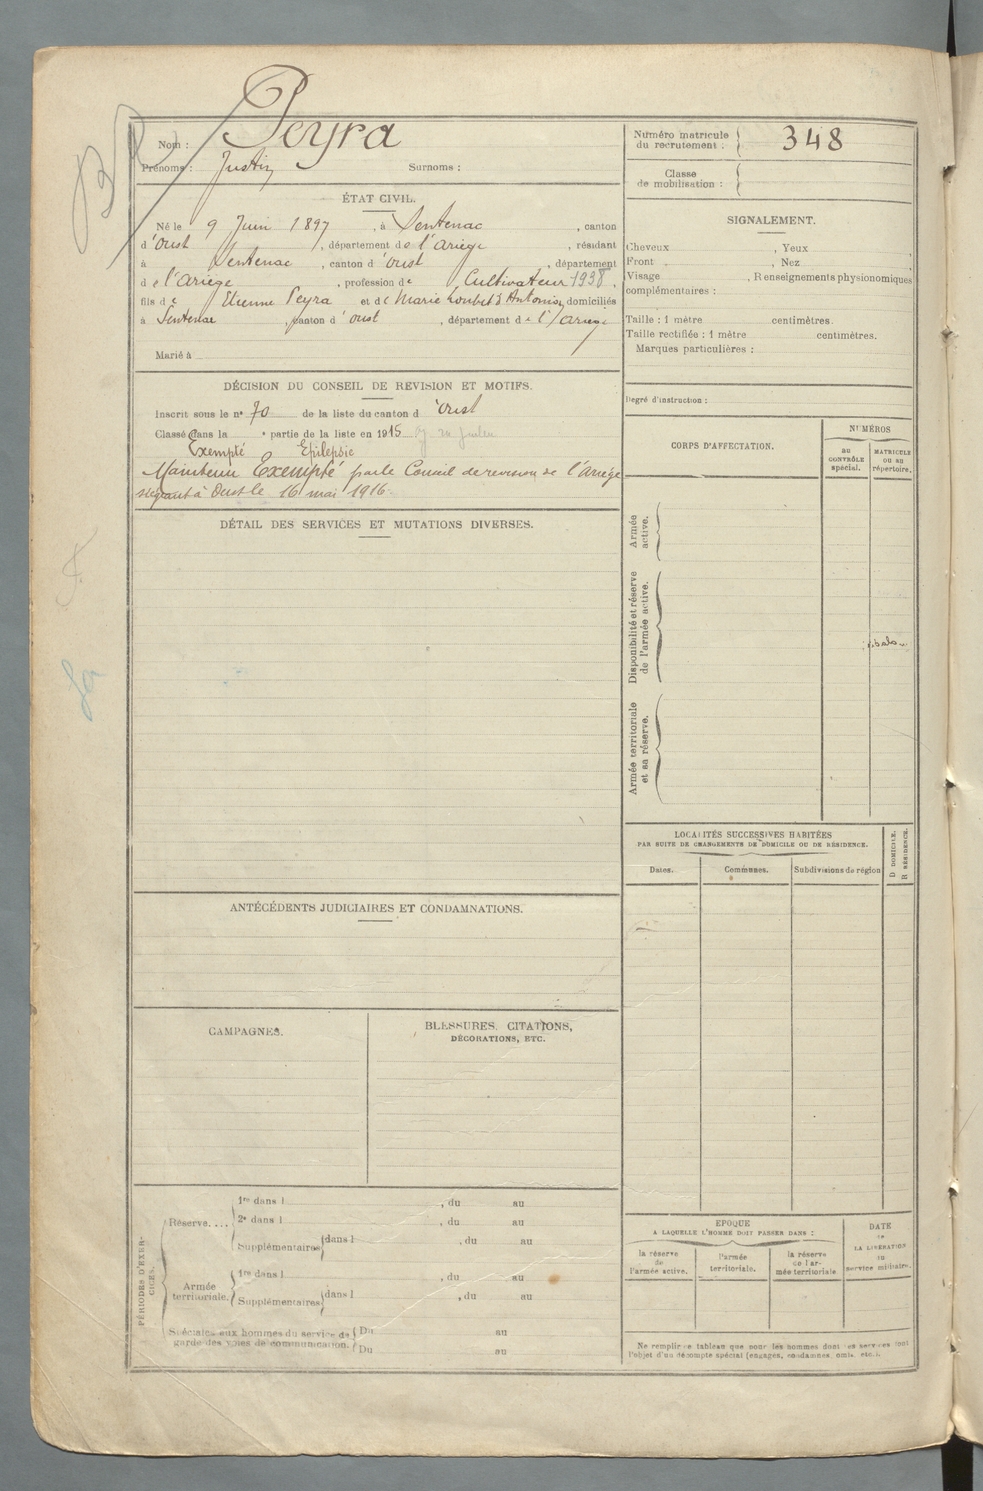 Nom : Peyra
Prénoms : Justin Surnoms :
Numéro matricule du recrutement : 348
Classe de mobilisation :
ÉTAT CIVIL.
Né le 9 Juin 1897, à Sentenac, canton
d'Oust, département de l'Ariège, résidant
à Sentenac, canton d'Oust, département
de l'Ariège, profession de Cultivateur 1938,
fils de Etienne Peyra et de Marie Loubet Antonin, domiciliés
à Sentenac, canton d'Oust, département de l'Ariège
Marié à
DÉCISION DU CONSEIL DE REVISION ET MOTIFS.
Inscrit sous le n° 70 de la liste du canton d'Oust
Classé dans la e partie de la liste en 1915
Exempté Epilepsie
Maintenu Exempté par le Conseil de revision de l'Ariège
siégeant à Oust le 16 mai 1916.
DÉTAIL DES SERVICES ET MUTATIONS DIVERSES.
ANTÉCÉDENTS JUDICIAIRES ET CONDAMNATIONS.
CAMPAGNES.
BLESSURES, CITATIONS,
DÉCORATIONS, ETC.
PÉRIODES D'EXERCICES.
Réserve....
1re dans l , du au
2e dans l , du au
Supplémentaires dans l , du au
Armée territoriale.
1re dans l , du au
Supplémentaires dans l , du au
Spéciales aux hommes du service de garde des voies de communication.
Du au
Du au
SIGNALEMENT.
Cheveux , Yeux ,
Front , Nez ,
Visage , Renseignements physionomiques
complémentaires :
Taille : 1 mètre centimètres.
Taille rectifiée : 1 mètre centimètres.
Marques particulières :
Degré d'instruction :
CORPS D'AFFECTATION.
NUMÉROS
au CONTRÔLE spécial.
MATRICULE OU AU répertoire.
Armée active.
Disponibilité et réserve de l'armée active.
Armée territoriale et sa réserve.
LOCALITÉS SUCCESSIVES HABITÉES
PAR SUITE DE CHANGEMENTS DE DOMICILE OU DE RÉSIDENCE.
Dates.
Communes.
Subdivisions de région
D DOMICILE.
R RÉSIDENCE.
EPOQUE
A LAQUELLE L'HOMME DOIT PASSER DANS :
la réserve de l'armée active.
l'armée territoriale.
la réserve de l'armée territoriale
DATE DE LA LIBÉRATION DU service militaire.
Ne remplir ce tableau que pour les hommes dont les services font
l'objet d'un décompte spécial (engagés, condamnés, omis, etc.).